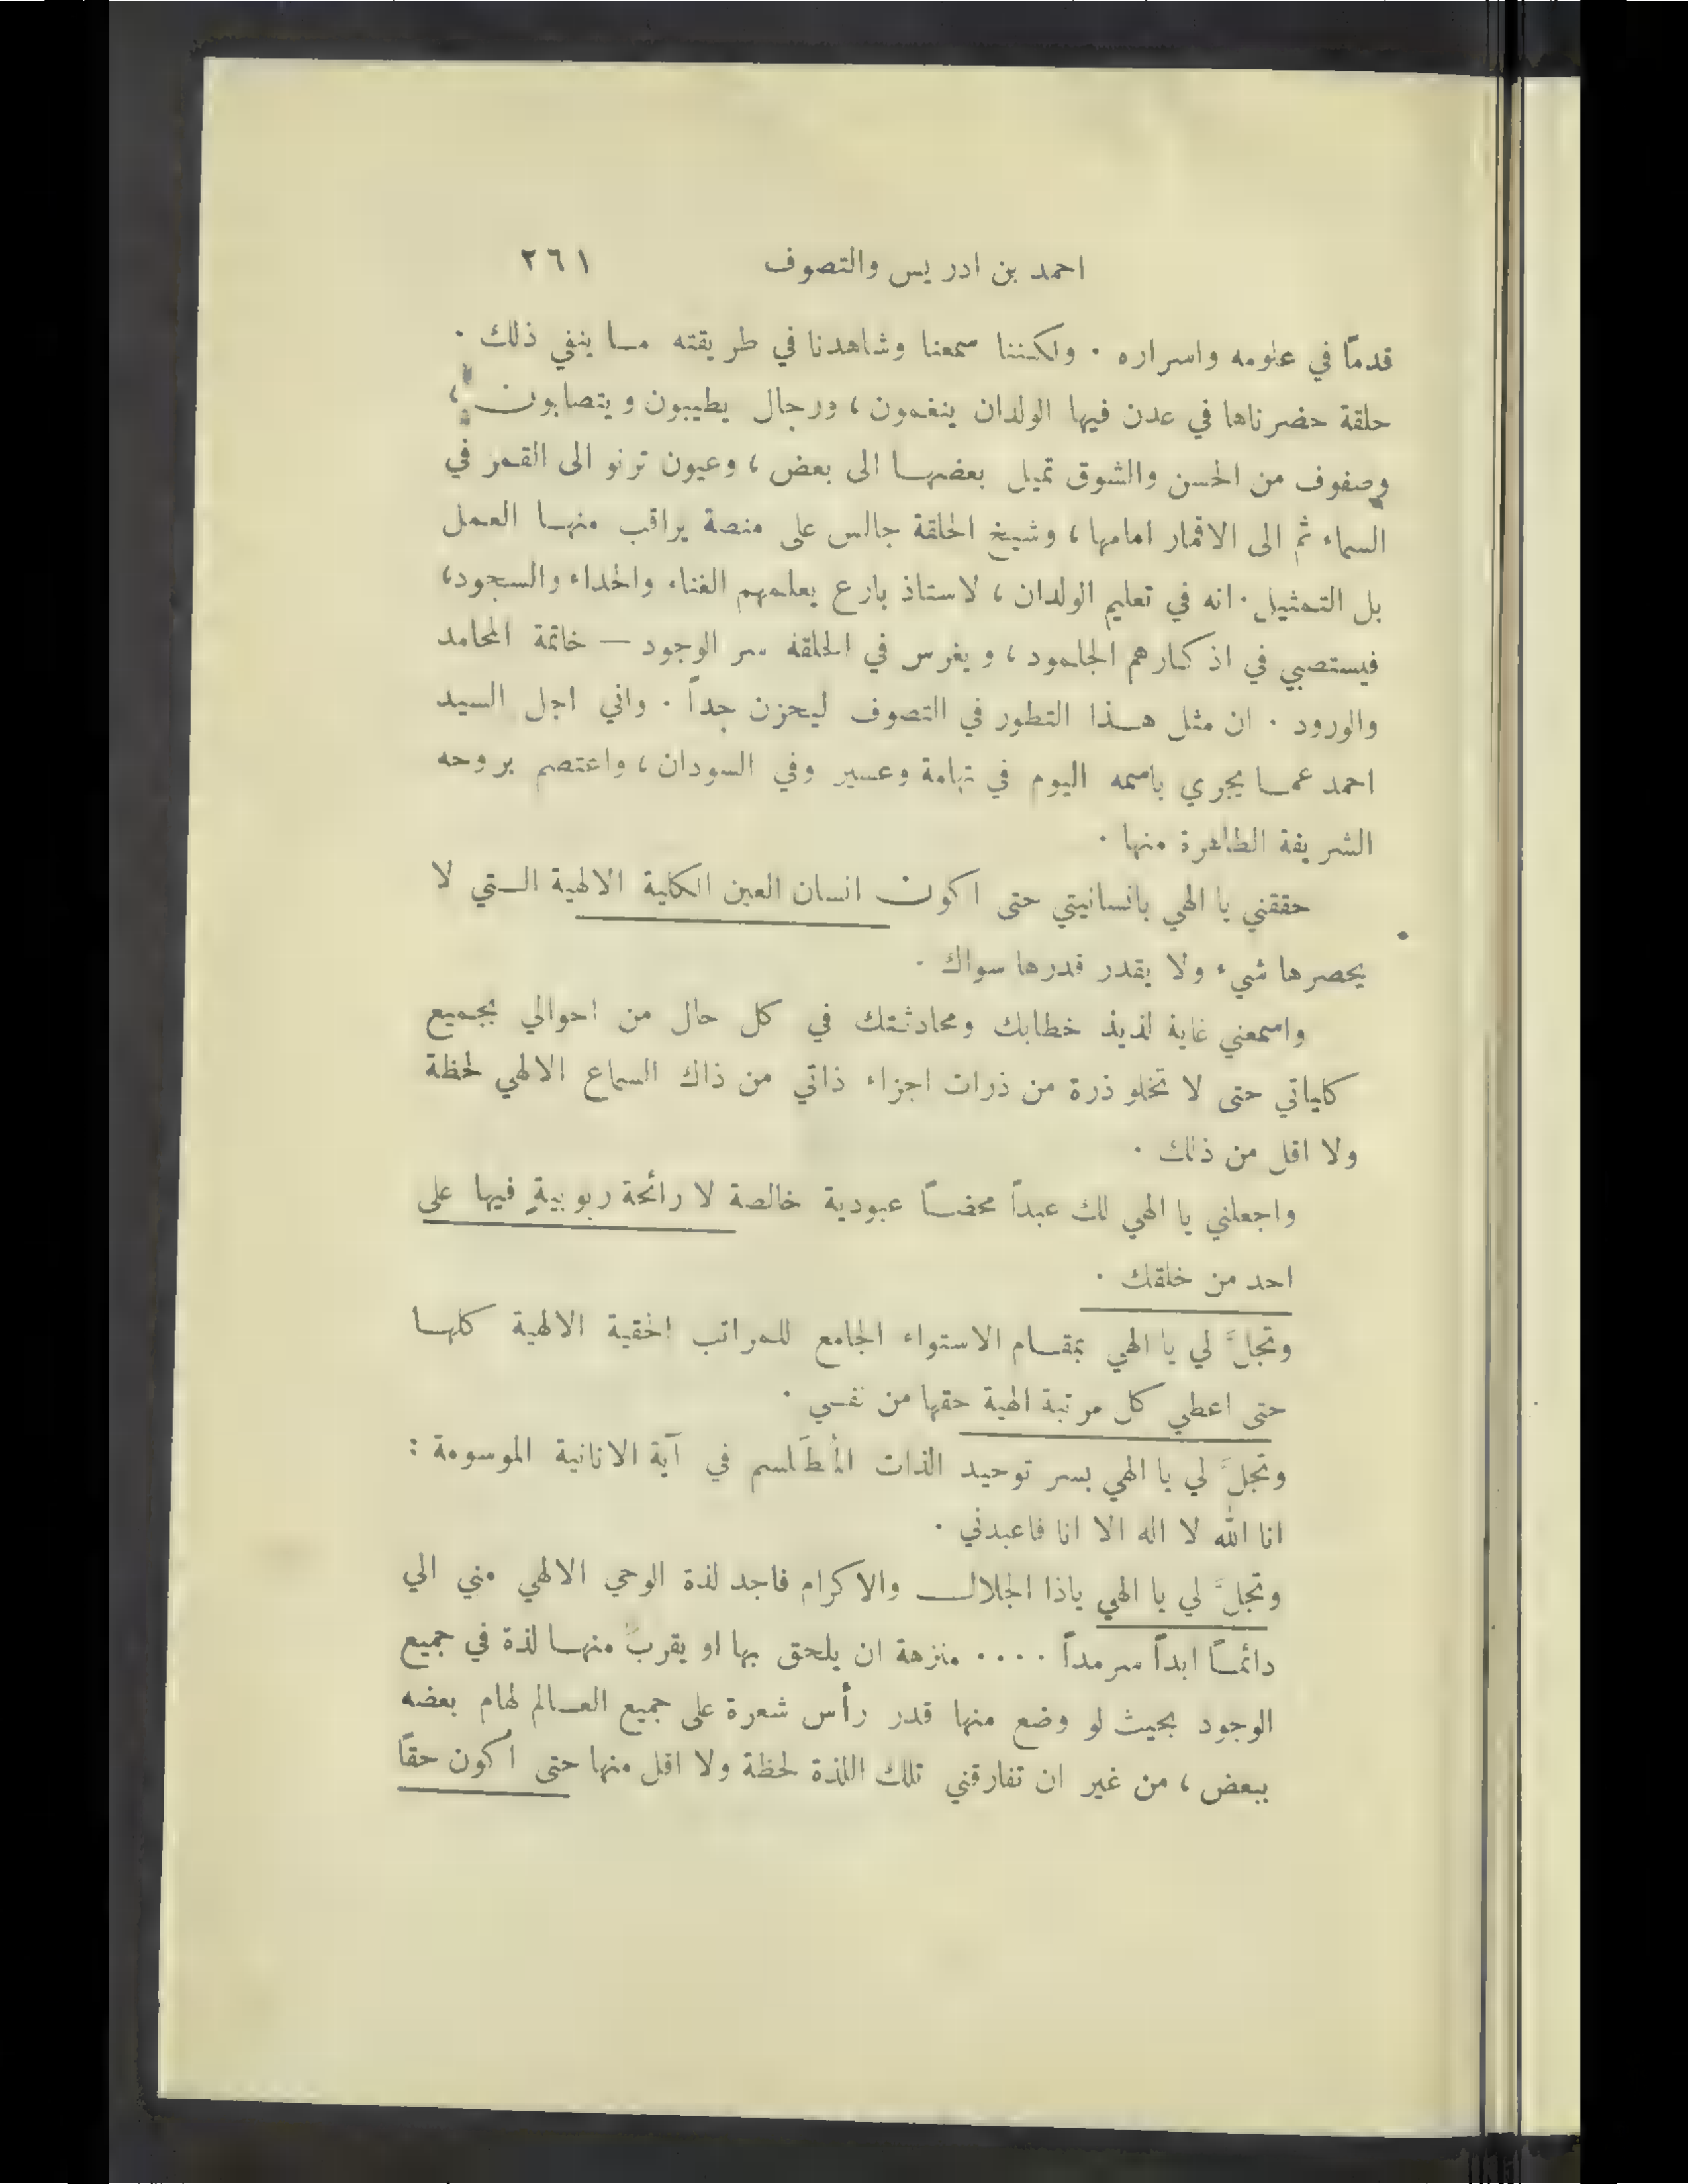 احمد بن ادريس والتصوف ٢٦١
قدماً في علومه واسراره . ولكننا سمعنا وشاهدنا في طريقته مـا ينفي ذلك .
حلقة حضرناها في عدن فيها الولدان ينغمون ، ورجال يطيبون ويتصابون ،
وصفوف من الحسن والشوق تميل بعضها الى بعض ، وعيون ترنو الى القمر في
السماء ثم الى الاقمار امامها ، وشيخ الحلقة جالس على منصة يراقب منها العمل
بل التمثيل . انه في تعليم الولدان ، لاستاذ بارع يعلمهم الغناء والحداء والسجود ،
فيستصبي في اذكارهم الجلمود ، ويغرس في الحلقة سر الوجود — خاتمة المحامد
والورود . ان مثل هـذا التطور في التصوف ليحزن جداً . واني اجل السيد
احمد عمـا يجري باسمه اليوم في تهامة وعسير وفي السودان ، واعتصم بروحه
الشريفة الطاهرة منها .
حققني يا الهي بانسانيتي حتى اكون انسان العين الكلية الالهية الـتي لا
يحصرها شيء ولا يقدر قدرها سواك .
واسمعني غاية لذيذ خطابك ومحادثتك في كل حال من احوالي بجميع
كلياتي حتى لا تخلو ذرة من ذرات اجزاء ذاتي من ذاك السماع الالهي لحظة
ولا اقل من ذلك .
واجعلني يا الهي لك عبداً محضـاً عبودية خالصة لا رائحة ربوبيةٍ فيها على
احد من خلقك .
وتجلَّ لي يا الهي بمقـام الاستواء الجامع للمراتب الحقية الالهية كلهـا
حتى اعطي كل مرتبة الهية حقها من نفسي .
وتجلَّ لي يا الهي بسر توحيد الذات المُطَلسم في آية الانانية الموسومة :
انا الله لا اله الا انا فاعبدني .
وتجلَّ لي يا الهي ياذا الجلال والاكرام فاجد لذة الوحي الالهي مني الي
دائمـاً ابداً سرمداً .... منزهة ان يلحق بها او يقرب منهـا لذة في جميع
الوجود بحيث لو وضع منها قدر رأس شعرة على جميع العـالم لهام بعضه
ببعض ، من غير ان تفارقني تلك اللذة لحظة ولا اقل منها حتى أكون حقاً